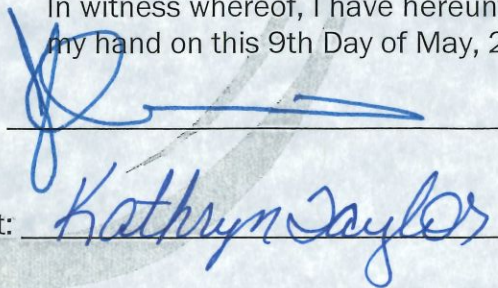 In witness whereof, I have hereun
my hand on this 9th Day of May, 2
t: Kathryn Taylor